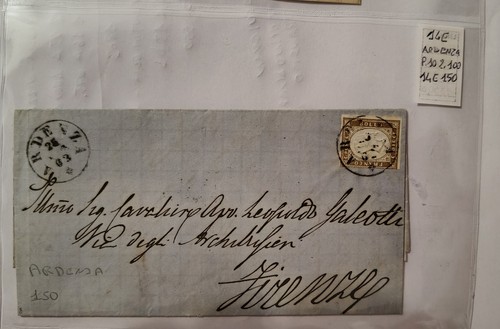 14E
ARDENZA
P.10 2.100
14E 150
ARDENZA
26
63
Illmo Sig. Cavaliere Avv. Leopoldo Galeotti
Firenze
ARDENZA
150